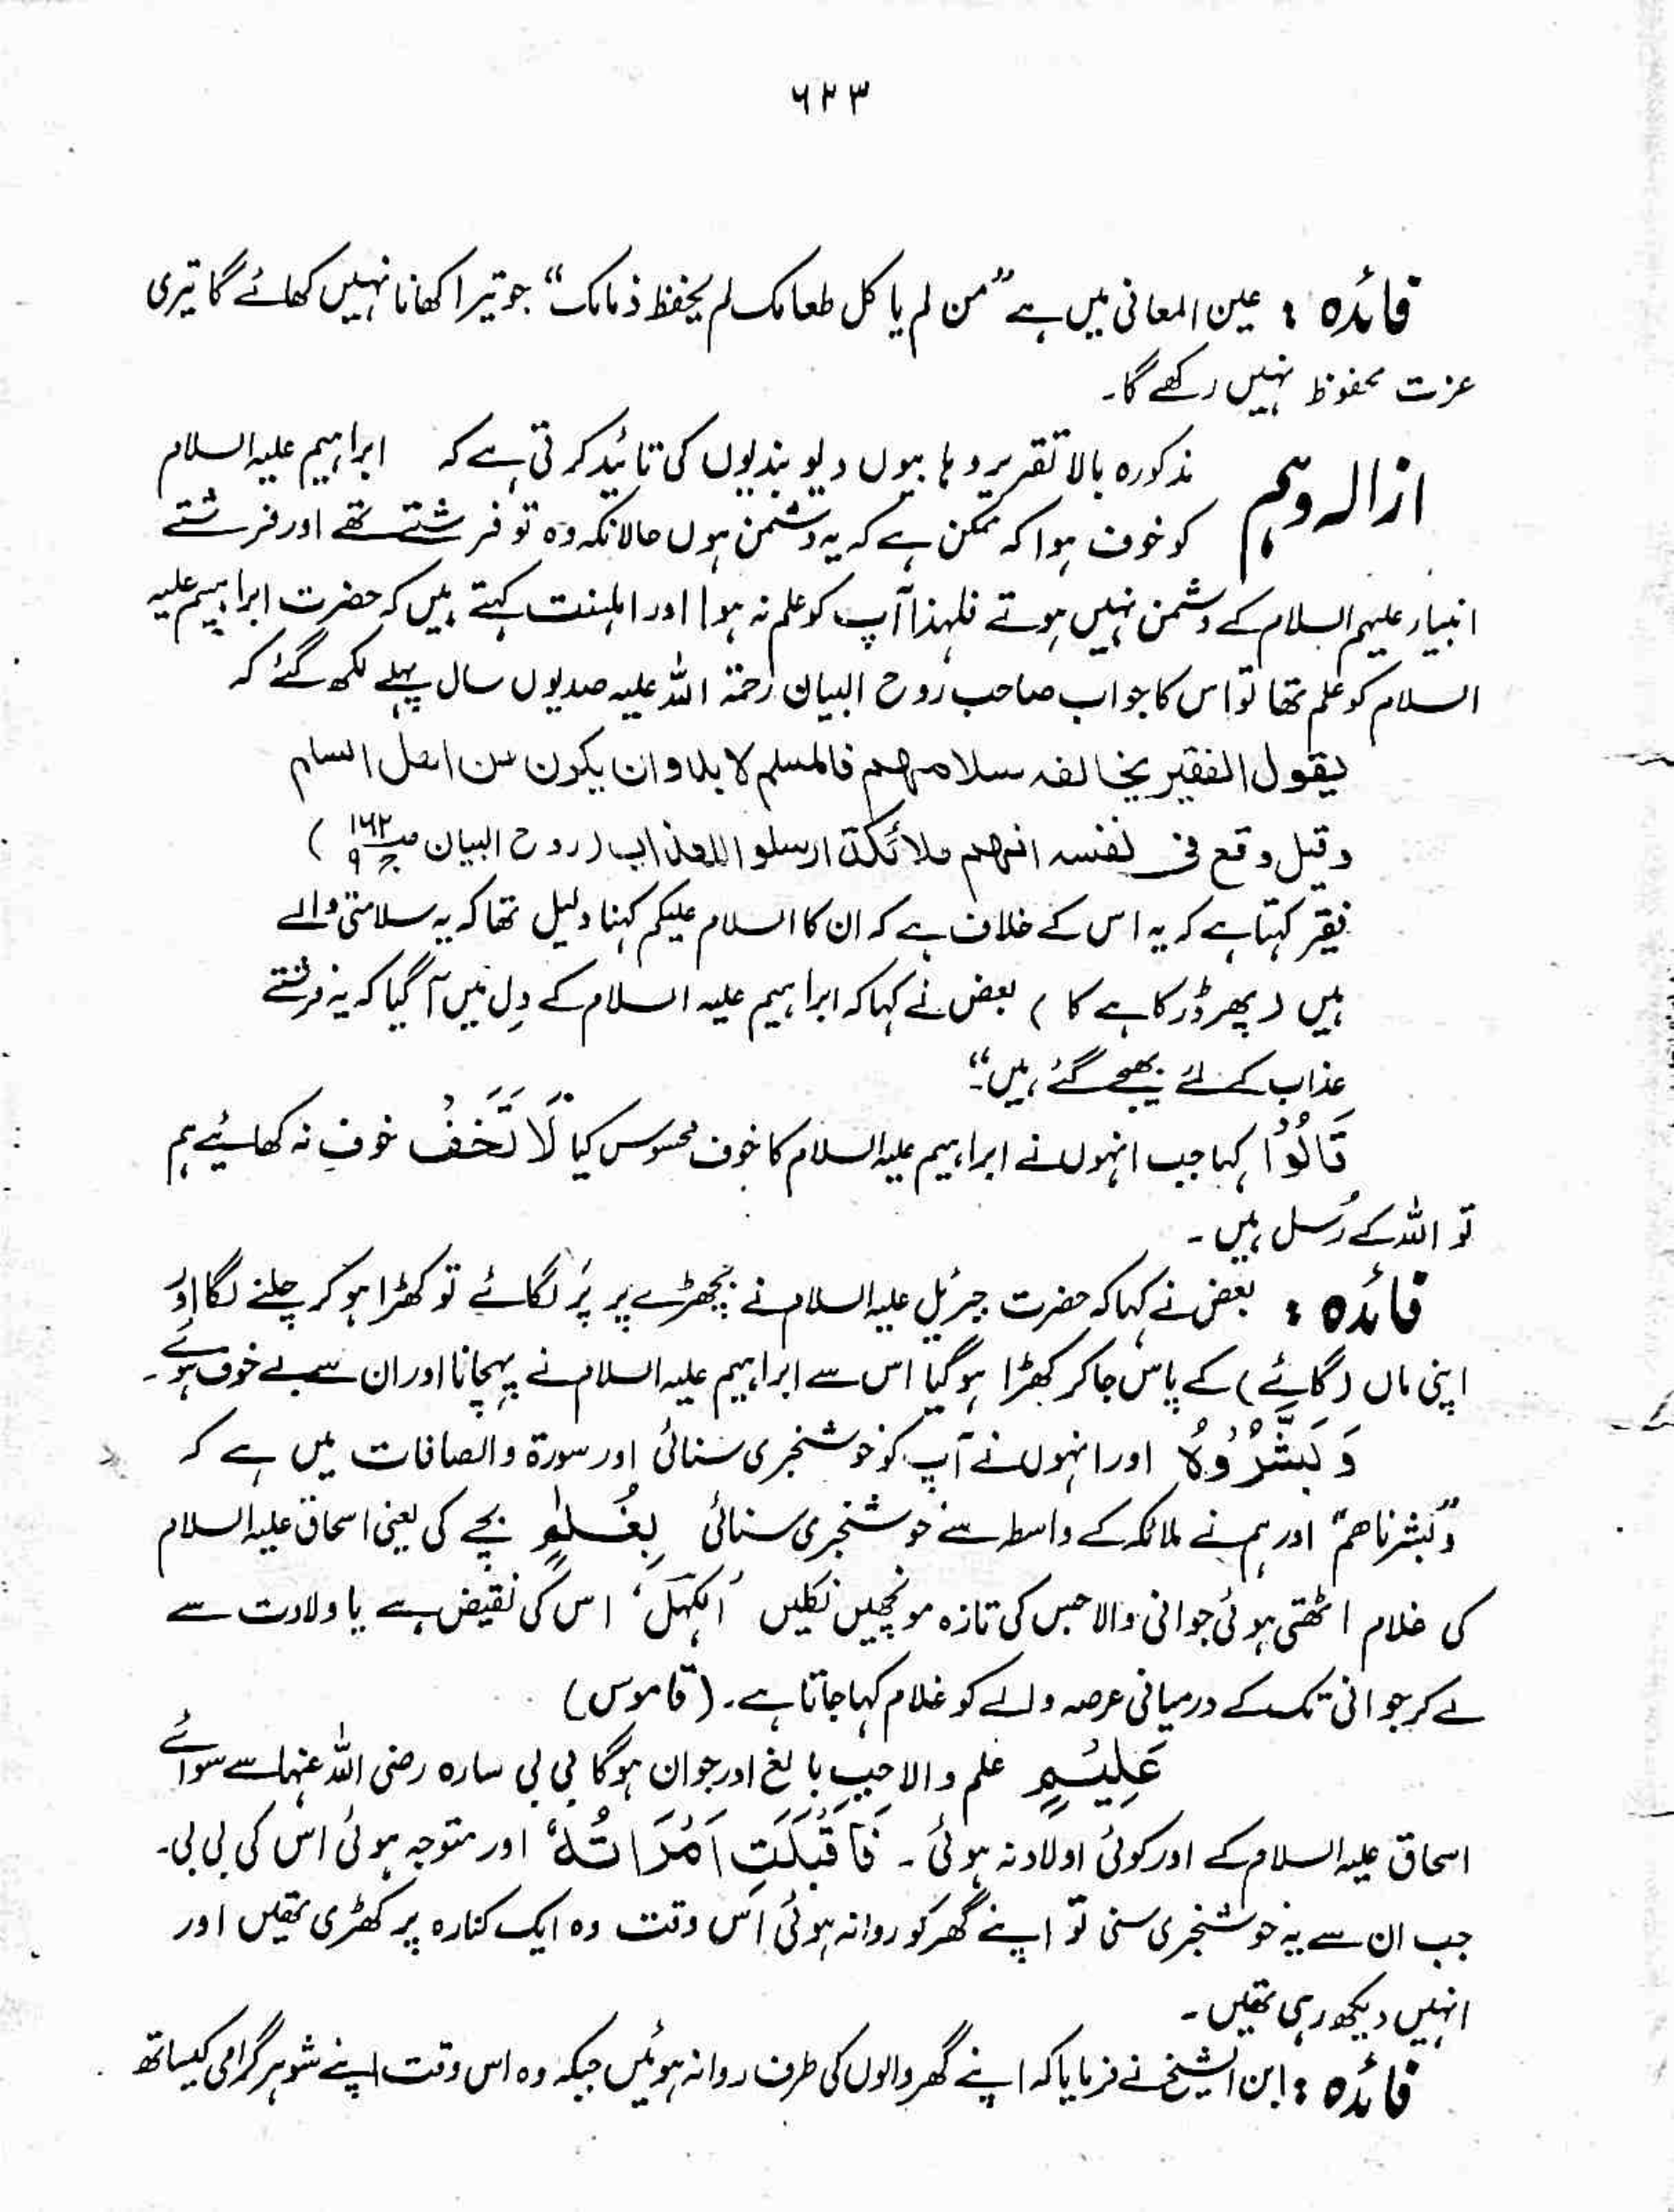 ۶۲۳
فائدہ : عین المعانی میں ہے ”من لم یاکل طعامک لم یحفظ ذمامک“ جو تیرا کھانا نہیں کھائے گا تیری
عزت محفوظ نہیں رکھے گا۔
ازالہ وہم
مذکورہ بالا تقریر وہابیوں دیوبندیوں کی تائید کرتی ہے کہ ابراہیم علیہ السلام
کو خوف ہوا کہ ممکن ہے کہ یہ دشمن ہوں حالانکہ وہ تو فرشتے تھے اور فرشتے
انبیاء علیہم السلام کے دشمن نہیں ہوتے فلہذا آپ کو علم نہ ہوا اور اہلسنت کہتے ہیں کہ حضرت ابراہیم علیہ
السلام کو علم تھا تو اس کا جواب صاحب روح البیان رحمۃ اللہ علیہ صدیوں سال پہلے لکھ گئے کہ
یقول الفقیر یخالفہ سلامہم فالمسلم لا بد وان یکون من اہل السلم
وقیل وقع فی نفسہ انہم ملائکۃ ارسلوا للعذاب (روح البیان ص۱۶۲ ج۹)
فقیر کہتا ہے کہ یہ اس کے خلاف ہے کہ ان کا السلام علیکم کہنا دلیل تھا کہ یہ سلامتی والے
ہیں (پھر ڈر کاہے کا) بعض نے کہا کہ ابراہیم علیہ السلام کے دِل میں آگیا کہ یہ فرشتے
عذاب کے لئے بھیجے گئے ہیں“۔
قَالُوْا کہا جب انہوں نے ابراہیم علیہ السلام کا خوف محسوس کیا لَا تَخَفْ خوف نہ کھائیے ہم
تو اللہ کے رُسل ہیں ۔
فائدہ : بعض نے کہا کہ حضرت جبرئیل علیہ السلام نے بچھڑے پر پَر لگائے تو کھڑا ہو کر چلنے لگا اور
اپنی ماں (گائے) کے پاس جاکر کھڑا ہوگیا اس سے ابراہیم علیہ السلام نے پہچانا اور ان سے بے خوف ہوئے ۔
وَ بَشَّرُوْہُ اور انہوں نے آپ کو خوشخبری سنائی اور سورۃ والصافات میں ہے کہ
”وبشرناھم“ اور ہم نے ملائکہ کے واسطہ سے خوشخبری سنائی بِغُلٰمٍ بچے کی یعنی اسحاق علیہ السلام
کی غلام اٹھتی ہوئی جوانی والا جس کی تازہ مونچھیں نکلیں ’الکہل‘ اس کی نقیض ہے یا ولادت سے
لے کر جوانی تک کے درمیانی عرصہ والے کو غلام کہا جاتا ہے۔ (قاموس)
عَلِیْمٍ علم والا جب بالغ اور جوان ہوگا بی بی سارہ رضی اللہ عنہا سے سوائے
اسحاق علیہ السلام کے اور کوئی اولاد نہ ہوئی ۔ فَاَقْبَلَتِ امْرَاَتُہٗ اور متوجہ ہوئی اس کی بی بی۔
جب ان سے یہ خوشخبری سنی تو اپنے گھر کو روانہ ہوئی اس وقت وہ ایک کنارہ پر کھڑی تھیں اور
انہیں دیکھ رہی تھیں ۔
فائدہ : ابن الشیخ نے فرمایا کہ اپنے گھر والوں کی طرف روانہ ہوئیں جبکہ وہ اس وقت اپنے شوہر گرامی کیساتھ